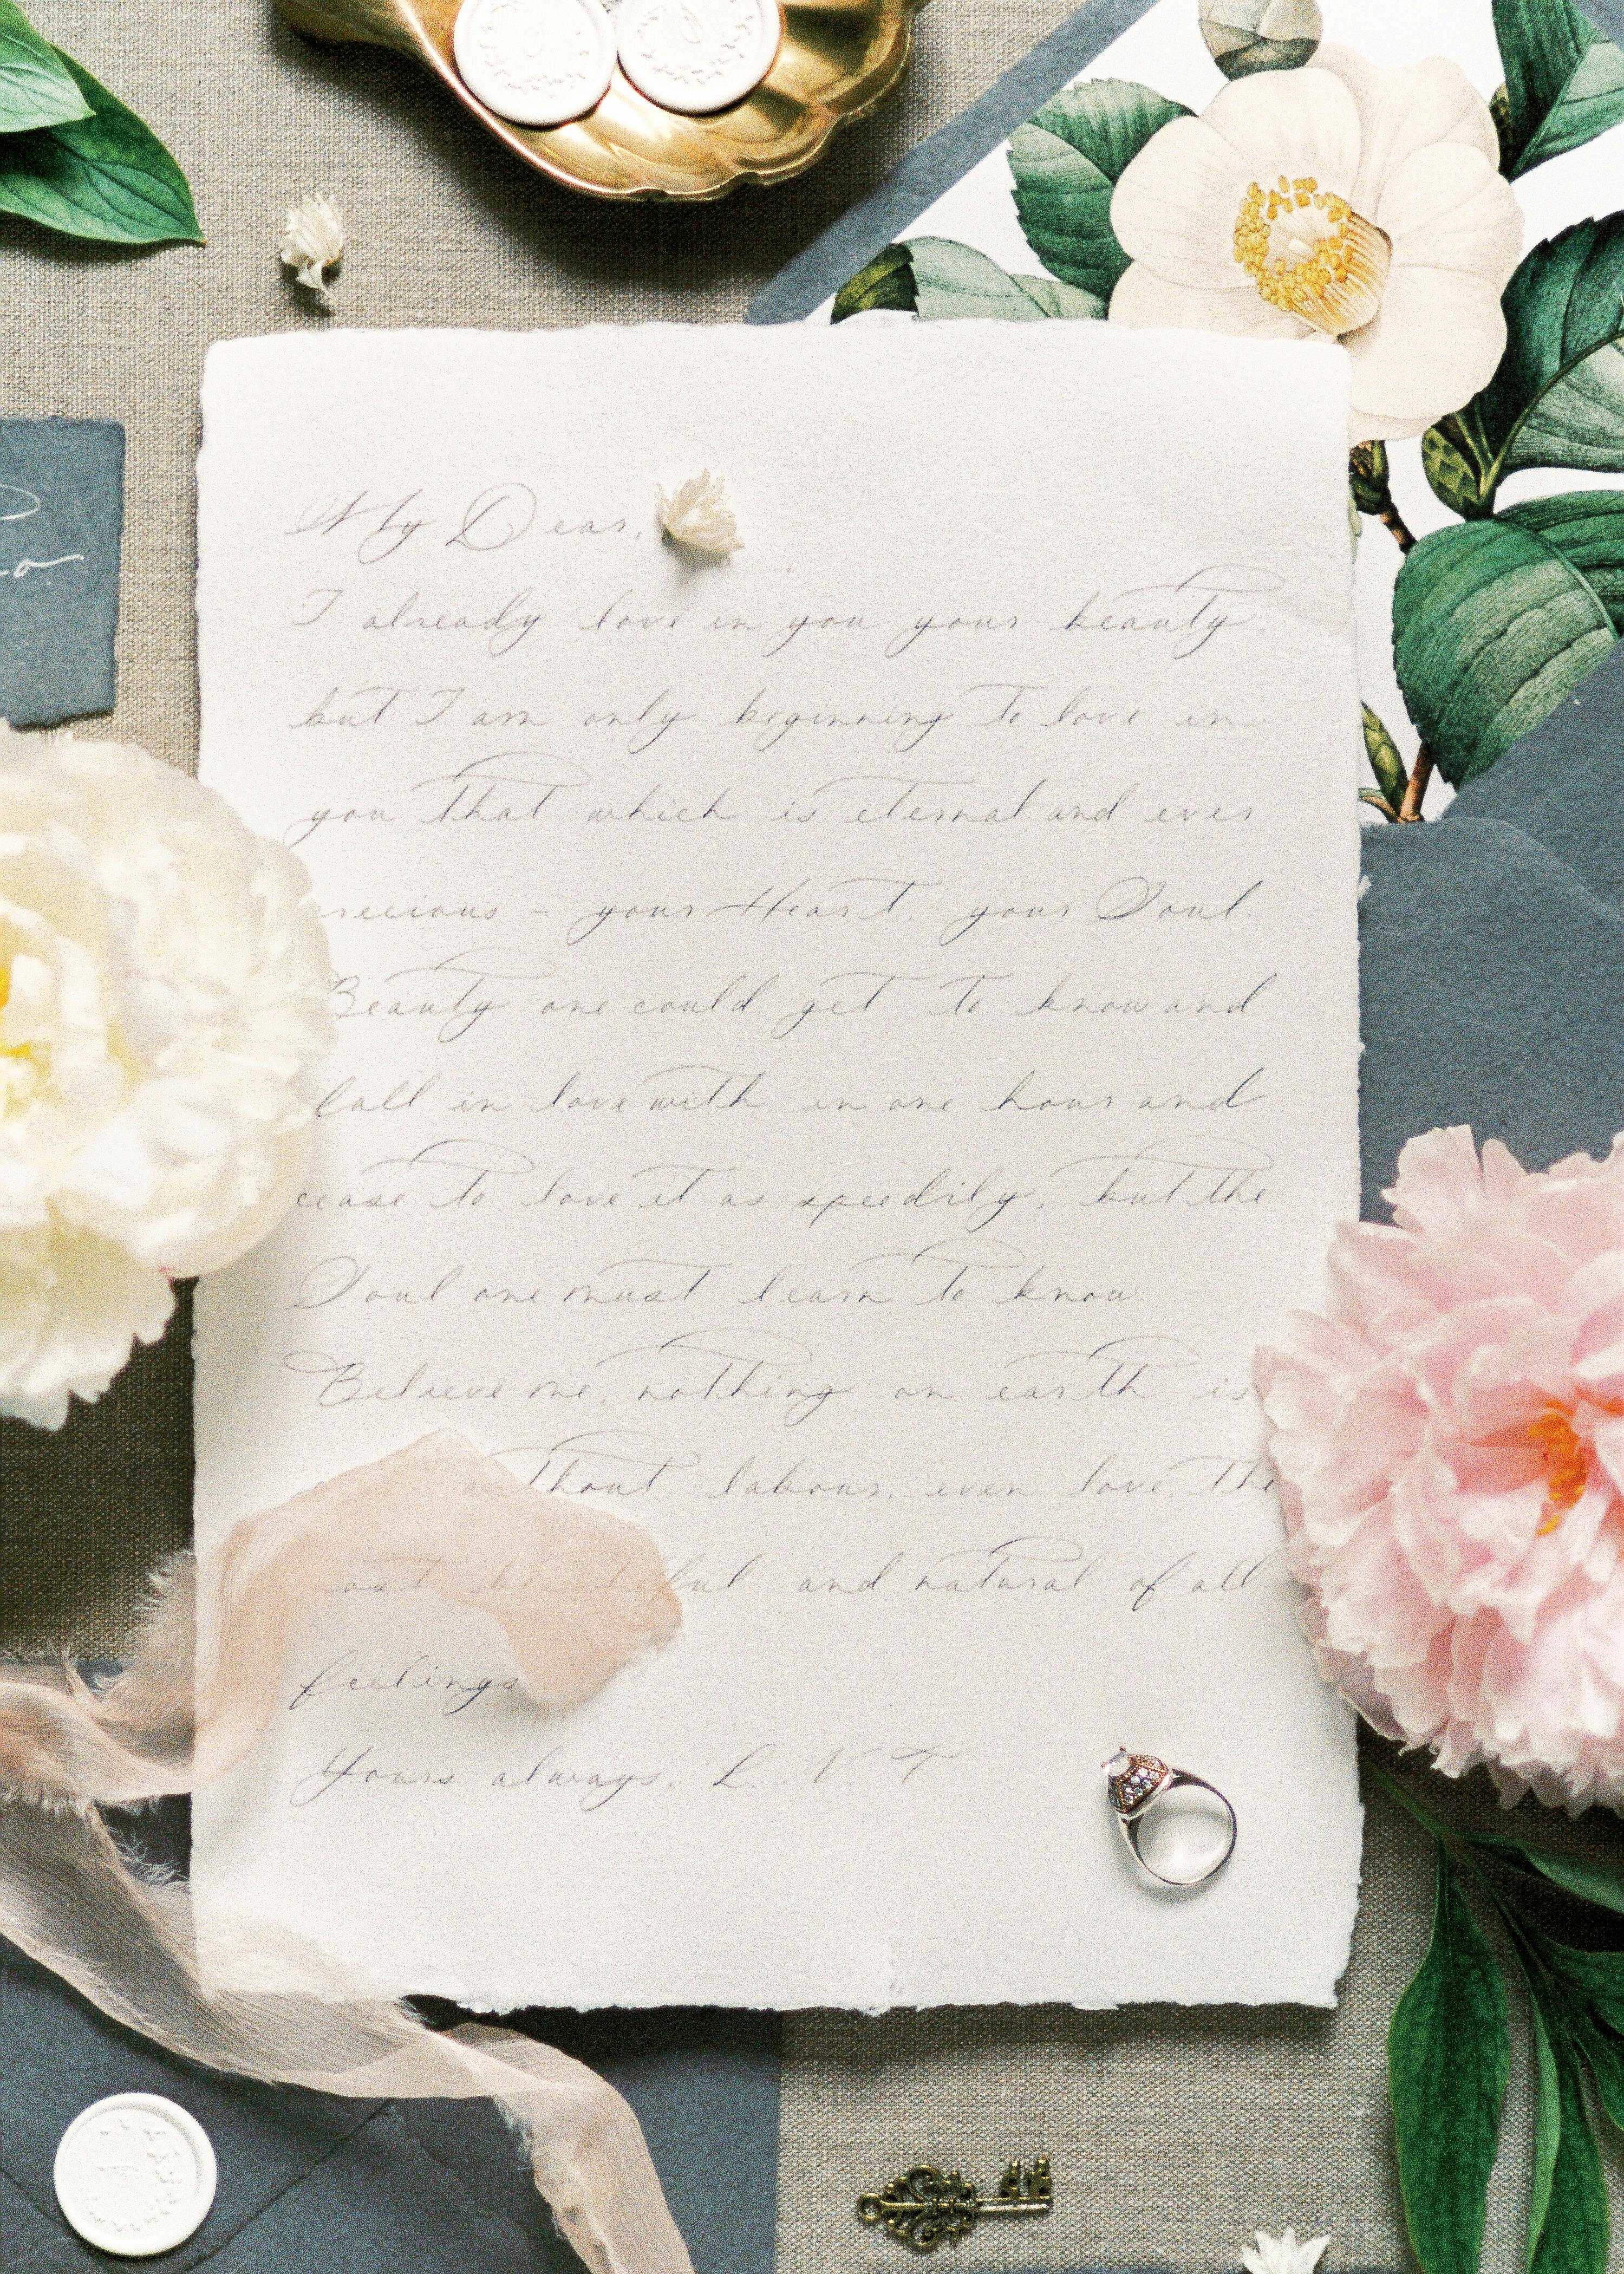 My Dear,
I already love in you your beauty,
but I am only beginning to love in
you that which is eternal and ever
precious - your Heart, your Soul.
Beauty one could get to know and
fall in love with in one hour and
cease to love it as speedily, but the
Soul one must learn to know
Believe me, nothing on earth is
without labour, even love, the
most beautiful and natural of all
feelings
Yours always, L. N T